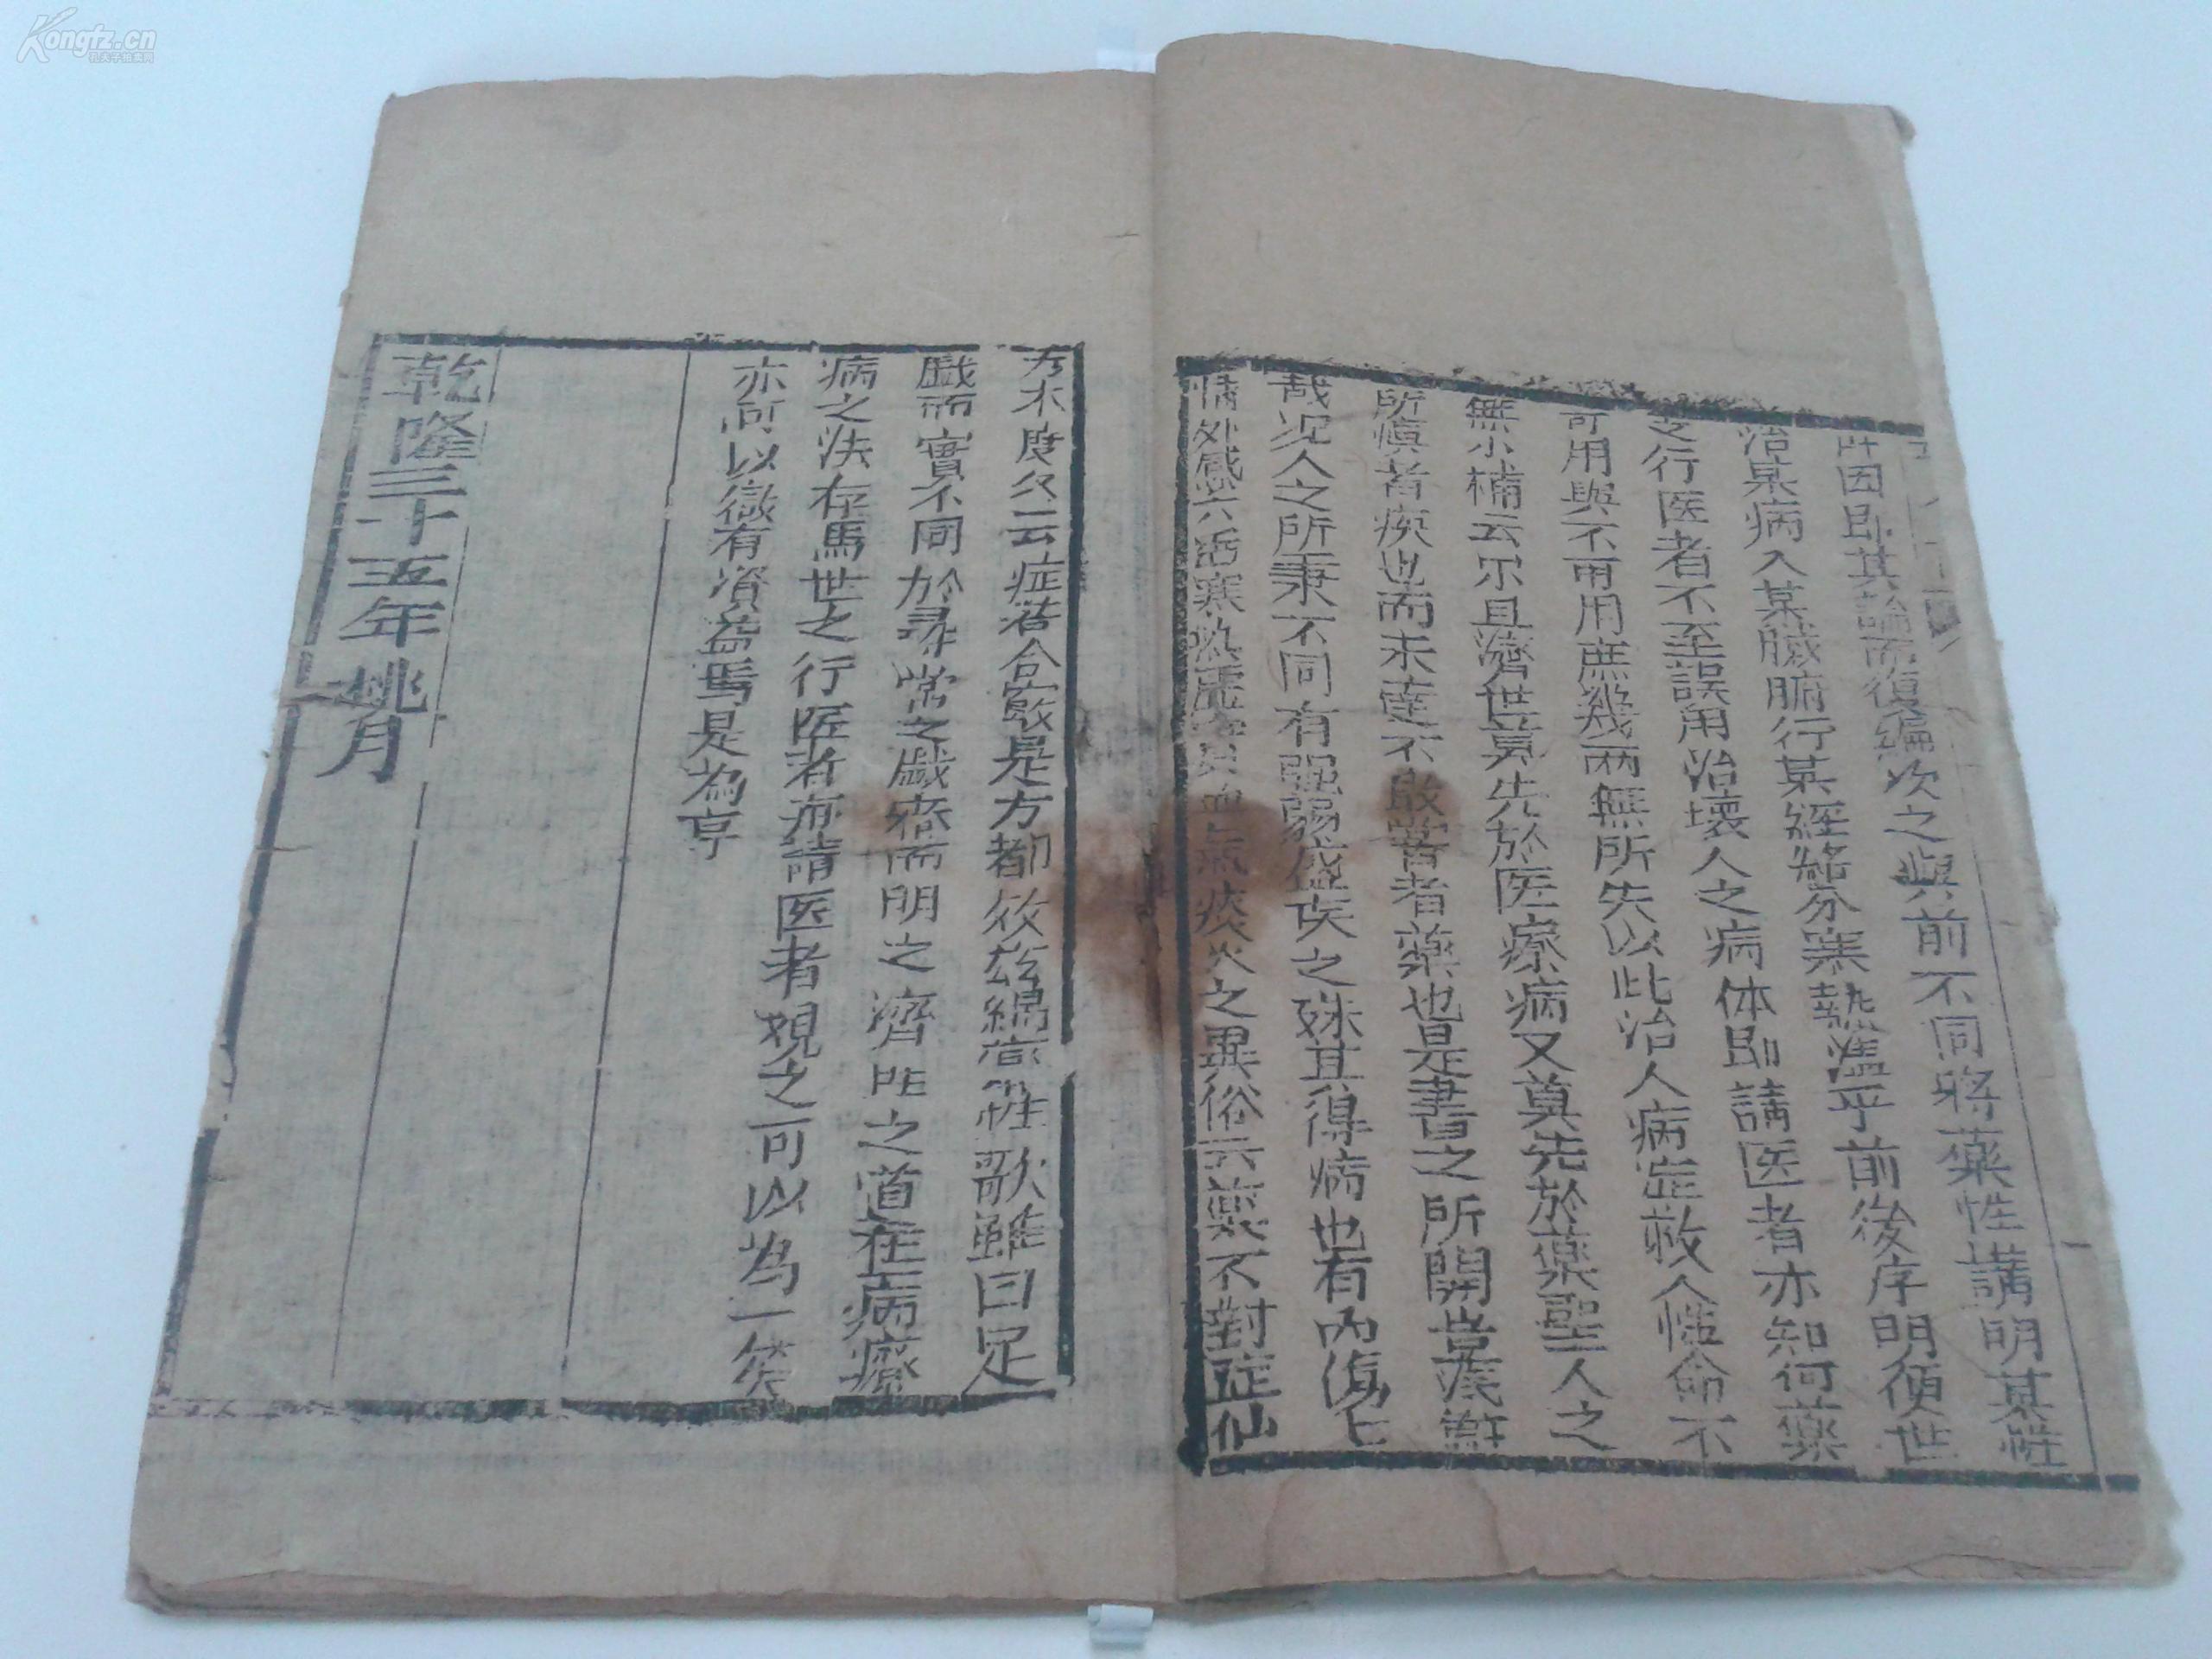 因即其論而復編次之與前不同將藥性講明某性
治某病入某臟腑行某經絡分寒熱溫平前後序明便世
之行医者不至誤用治壞人之病体即講医者亦知何藥
可用與不可用庶幾兩無所失以此治人病症救人性命不
無小補云尔且濟世莫先於医療病又莫先於藥聖人之
所慎者疾也而未達不敢嘗者藥也是書之所関豈淺鮮
哉况人之所秉不同有强弱盛衰之殊其得病也有內傷七
情外感六淫寒热虛實血氣痰火之異俗云藥不對症仙
方木度久云症若合窾是方都效兹編藥性歌雖曰足
戲而實不同於尋常之戲齊而明之濟世之道在病療
病之法存焉世之行医者亦請医者观之可以為一笑
亦可以微有資益焉是為序
乾隆三十五年桃月
Kongfz.cn
孔夫子拍卖网